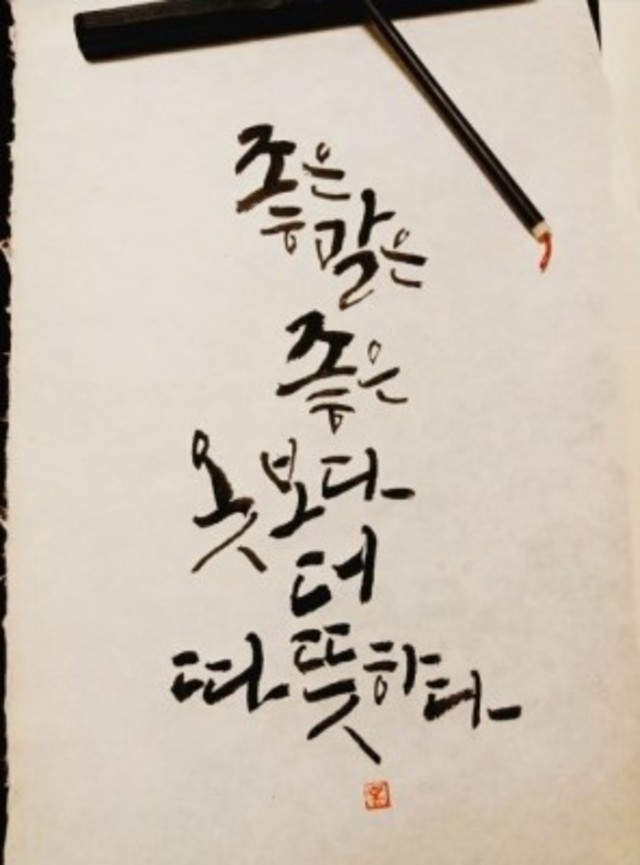 좋은
말은
좋은
옷보다
더
따뜻하다